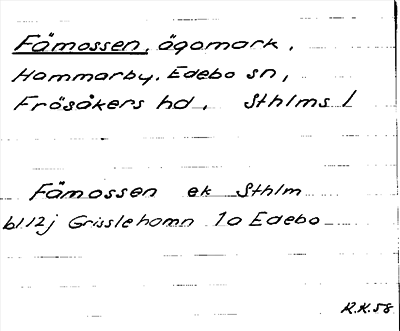 Fämossen, ägomark,
Hammarby, Edebo sn,
Frösåkers hd, Sthlms l
Fämossen ek Sthlm
bl 12j Grisslehamn 1o Edebo
R.K.58